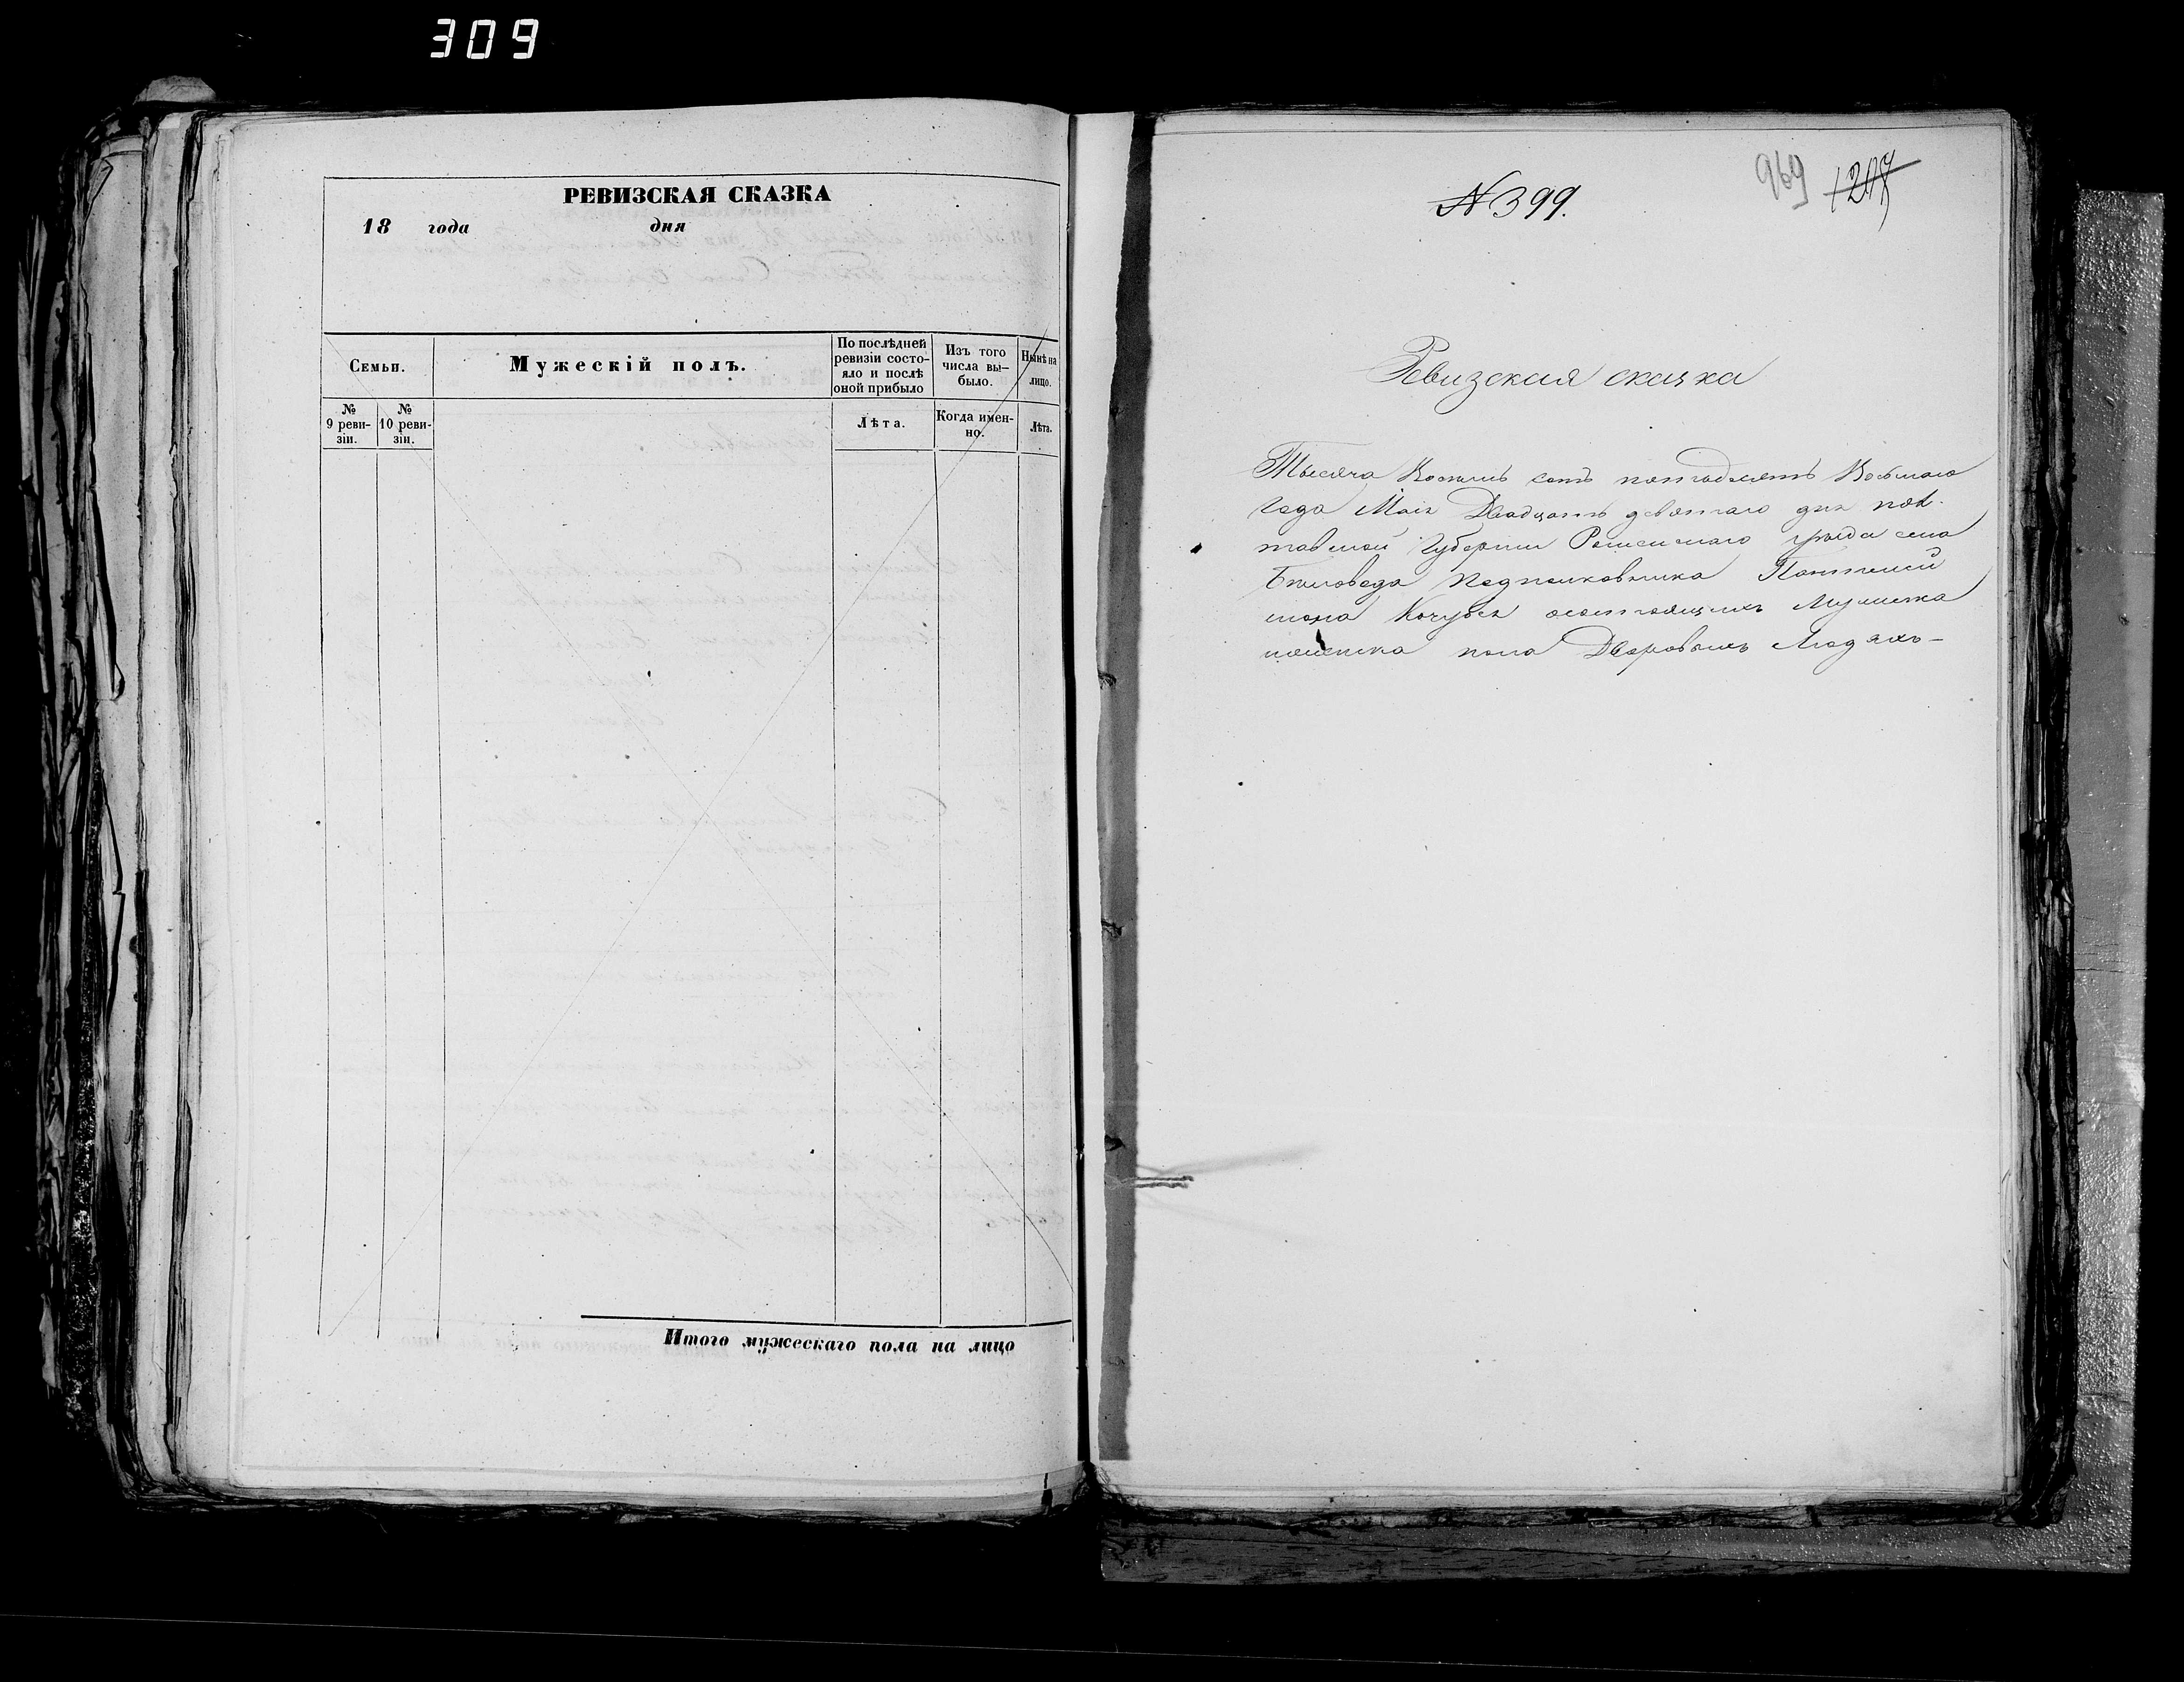 309
РЕВИЗСКАЯ СКАЗКА
18 года дня
Семьи.
Мужескій полъ.
По послѣдней ревизіи состояло и послѣ оной прибыло
Изъ того числа выбыло.
Нынѣ на лицо.
№ 9 ревизіи.
№ 10 ревизіи.
Лѣта.
Когда именно.
Лѣта.
Итого мужескаго пола на лицо
969 1207
№ 399.
Ревизская сказка
Тысяча Восемь сотъ пятьдесятъ Восьмаго
года Маія Двадцать девятаго дня пол-
тавской Губерніи Роменскаго уѣзда села
Бѣловода Подполковника
Мужеска
пола Дворовыхъ Людяхъ-